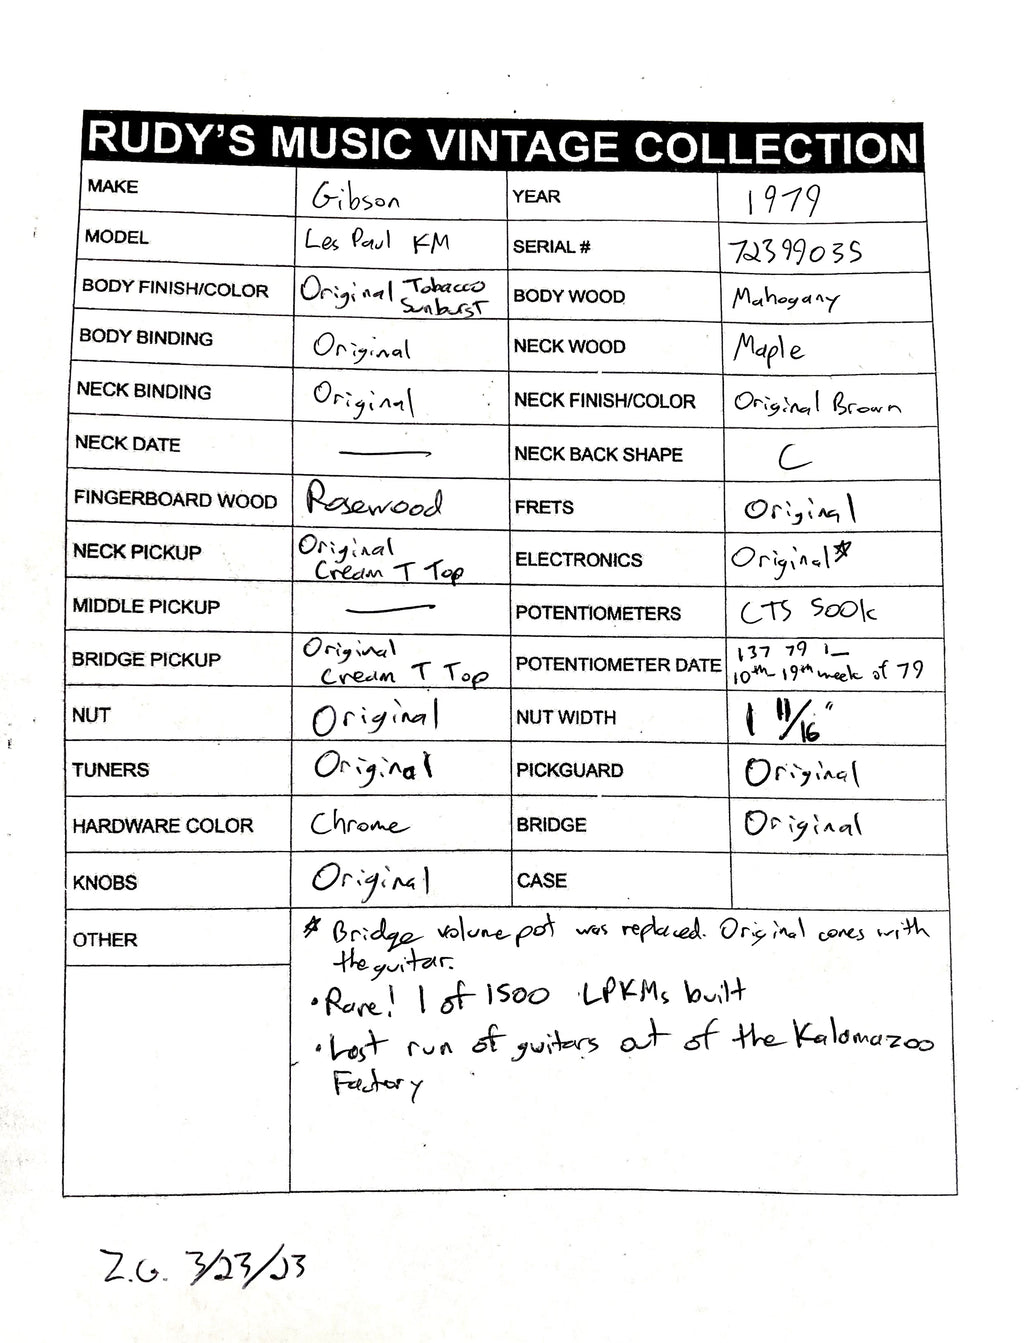 RUDY'S MUSIC VINTAGE COLLECTION
MAKE Gibson YEAR 1979
MODEL Les Paul KM SERIAL # 72399035
BODY FINISH/COLOR Original Tobacco Sunburst BODY WOOD Mahogany
BODY BINDING Original NECK WOOD Maple
NECK BINDING Original NECK FINISH/COLOR Original Brown
NECK DATE — NECK BACK SHAPE C
FINGERBOARD WOOD Rosewood FRETS Original
NECK PICKUP Original Cream T Top ELECTRONICS Original*
MIDDLE PICKUP — POTENTIOMETERS CTS 500k
BRIDGE PICKUP Original Cream T Top POTENTIOMETER DATE 137 79 1_
10th 19th week of 79
NUT Original NUT WIDTH 1 11/16"
TUNERS Original PICKGUARD Original
HARDWARE COLOR Chrome BRIDGE Original
KNOBS Original CASE
OTHER * Bridge volume pot was replaced. Original comes with
the guitar.
• Rare! 1 of 1500 LPKMs built
• Last run of guitars out of the Kalamazoo
Factory
Z.G. 3/23/23